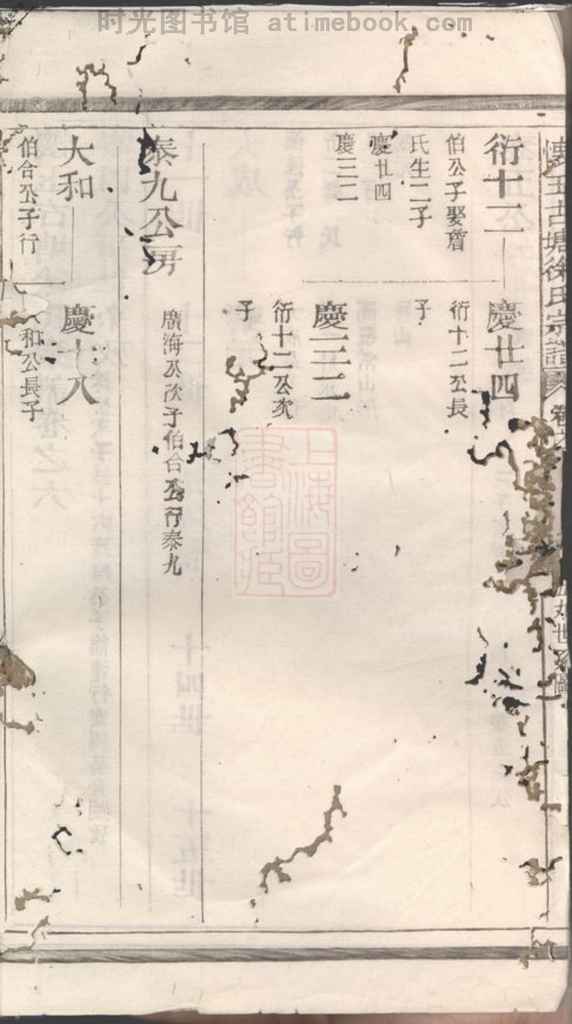 时光图书馆 atimebook.com
玉古塘徐氏宗譜
衍十二
伯公子娶詹
氏生二子
慶廿四
慶三二
慶廿四
衍十二公長
子
慶三二
衍十二公次
子
泰九公房
廣海公次子伯合公行泰九
大和
伯合公子行
慶十八
和公長子
上海圖書館藏